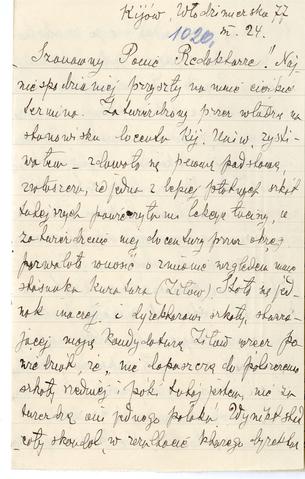 Kijów, Włodzimierska 77
m. 24.
1020,
Szanowny Panie Redaktorze! Naj-
niespodzianiej przyszły na mnie ciężkie
termina. Zatwierdzony przez władzę na
stanowisku docenta Kij. Uniw. zyski-
wałem – zdawało się pewną podstawę,
zwłaszcza, że jedna z lepiej płatnych szkół
tutejszych powierzyła mi lekcje łaciny, a
zatwierdzenie mej docentury przez okrąg
pozwalało wnosić o zmianie względem mnie
stosunku kuratora (Ziłów). Stało się jed-
nak inaczej, i dyrektorowi szkoły, stawia-
jącej moją kandydaturę Ziłów wręcz po-
wiedział, że, nie dopuszczę do polszczenia
szkoły średniej i póki tutaj jestem, nie za-
twierdzę ani jednego polaka. Wyniknął
cały skandal, w rezultacie którego dyrektor